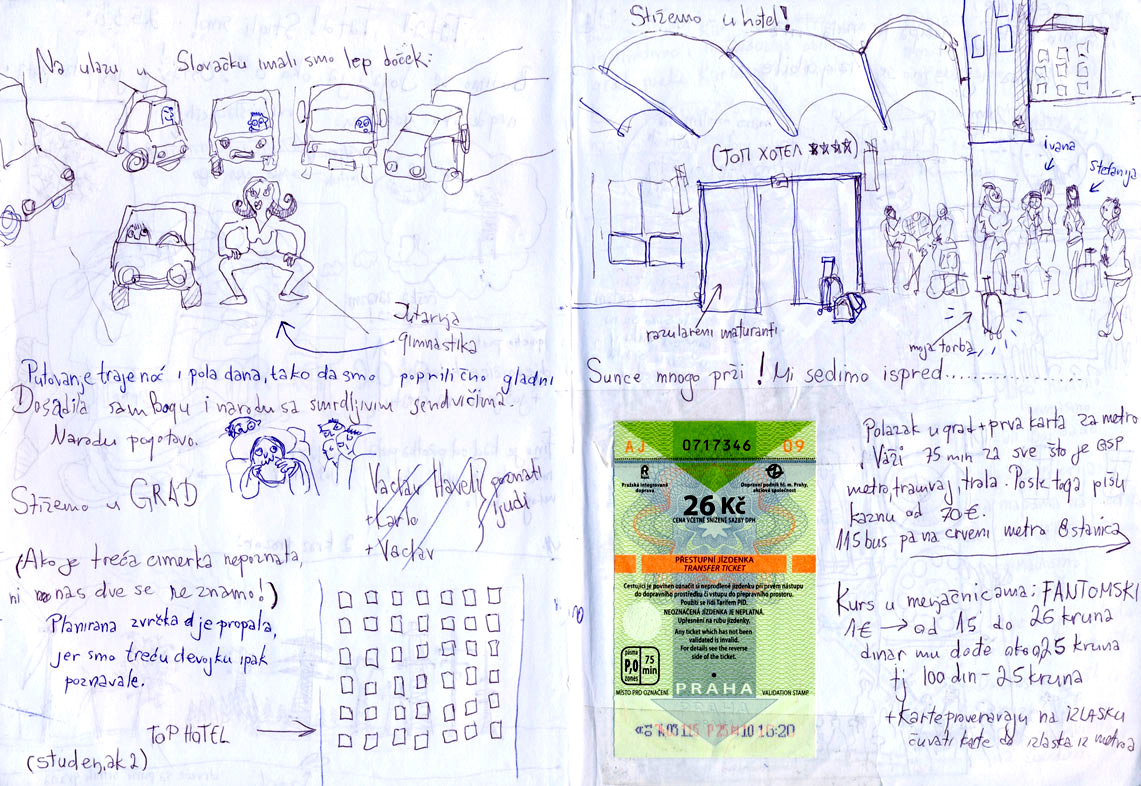 Na ulazu u Slovačku imali smo lep doček:
Jutarnja
gimnastika
Putovanje traje noć i pola dana, tako da smo poprilično gladni
Dosadila sam Bogu i narodu sa smrdljivim sendvičima.
Narodu pogotovo.
Stižemo u GRAD
Vaclav Haveli
+ Karlo
+ Vaclav
poznati
ljudi
(Ako je treća cimerka nepoznata,
ni nas dve se ne znamo!)
Planirana zvrčka dje propala,
jer smo treću devojku ipak
poznavale.
TOP HOTEL
(studenjak 2)
Stižemo u hotel!
(ТОП ХОТЕЛ ★★★★)
ivana
stefanija
razulareni maturanti
moja torba
Sunce mnogo prži! Mi sedimo ispred................
AJ 0717346 09
Pražská integrovaná
doprava
Dopravní podnik hl. m. Prahy,
akciová společnost
26 Kč
CENA VČETNĚ SNÍŽENÉ SAZBY DPH
PŘESTUPNÍ JÍZDENKA
TRANSFER TICKET
Cestující je povinen označit si neprodleně jízdenku při prvém nástupu
do dopravního prostředku či vstupu do přepravního prostoru.
Použití se řídí Tarifem PID.
NEOZNAČENÁ JÍZDENKA JE NEPLATNÁ.
Upřesnění na rubu jízdenky.
Any ticket which has not been
validated is invalid.
For details see the reverse
side of the ticket.
pásma
P,0
zones
75
min
MÍSTO PRO OZNAČENÍ
PRAHA
VALIDATION STAMP
Polazak u grad + prva karta za metro
Važi 75 min za sve što je GSP
metro, tramvaj, trola. Posle toga pišu
kaznu od 70€.
115 bus pa na crveni metro 8 stanica
Kurs u menjačnicama: FANTOMSKI
1€ → od 15 do 26 kruna
dinar mu dođe oko 0,25 kruna
tj 100 din - 25 kruna
+ Karte proveravaju na IZLASKU
čuvati karte do izlaska iz metroa